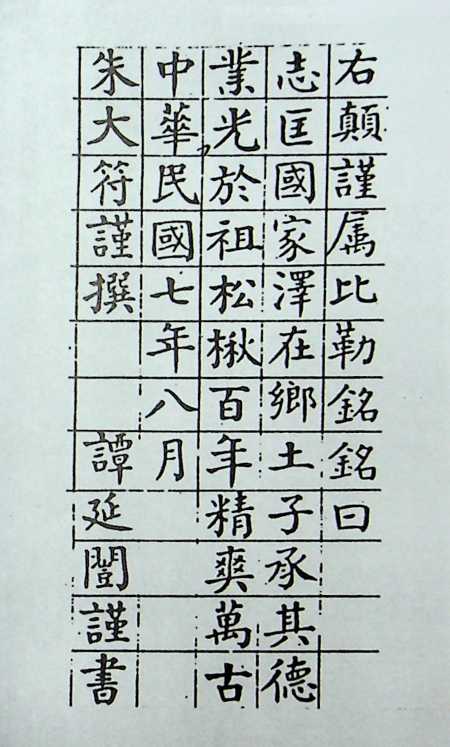 右顛謹属比勒銘銘曰
志匡國家澤在鄉土子承其德
業光於祖松楸百年精爽萬古
中華民國七年八月
朱大符謹撰 譚延闓謹書